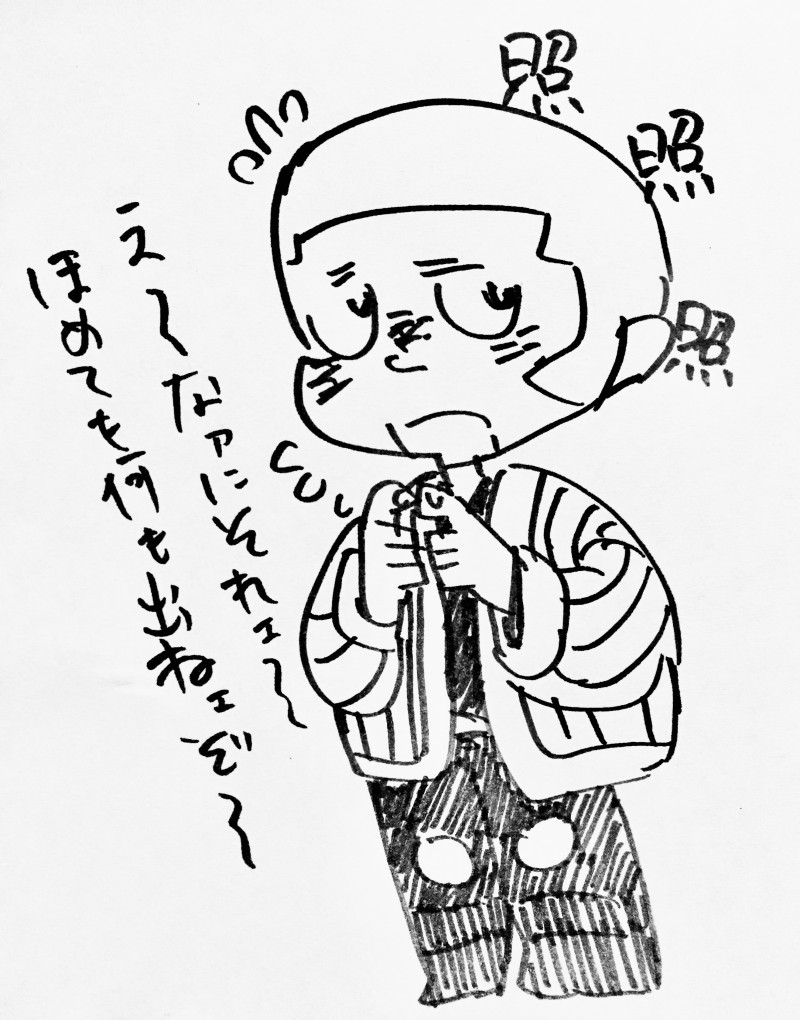 照
照
照
えーなァにそれェ〜
ほめても何も出ねェぞ〜